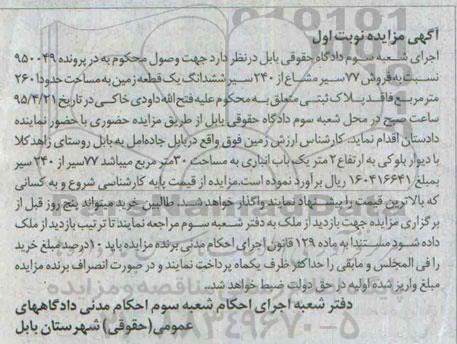 آگهی مزایده نوبت اول
اجرای شعبه سوم دادگاه حقوقی بابل درنظر دارد جهت وصول محکوم به در پرونده ۹۵۰۰۴۹
نسبت به فروش ۷۷سیر مشاع از ۲۴۰ سیر ششدانگ یک قطعه زمین به مساحت حدودا ۲۶۰
متر مربع فاقد پلاک ثبتی متعلق به محکوم علیه فتح الله داودی خاکی در تاریخ ۹۵/۴/۲۱
ساعت صبح در محل شعبه سوم دادگاه حقوقی بابل از طریق مزایده حضوری با حضور نماینده
دادستان اقدام نماید. کارشناس ارزش زمین فوق واقع دربابل جاده‌امل به بابل روستای زاهدکلا
با دیوار بلوکی به ارتفاع ۲ متر یک باب انباری به مساحت ۳۰متر مربع میباشد ۷۷سیر از ۲۴۰ سیر
بمبلغ ۱۶۰۴۱۶۶۴۱ ریال برآورد نموده است.مزایده از قیمت پایه کارشناسی شروع و به کسانی
که بالاترین قیمت را پیشنهاد نمایند واگذار خواهد شد. طالبین خرید میتواند پنج روز قبل از
برگزاری مزایده جهت بازدید از ملک به دفتر شعبه سوم مراجعه نمایند تا ترتیب بازدید از ملک
داده شود مستندا به ماده ۱۲۹ قانون اجرای احکام مدنی برنده مزایده باید ۱۰درصد مبلغ خرید
را فی المجلس و مابقی را حداکثر ظرف یکماه پرداخت نمایند و در صورت انصراف برنده مزایده
مبلغ واریز شده اولیه در حق دولت ضبط خواهد شد.
دفتر شعبه اجرای احکام شعبه سوم احکام مدنی دادگاههای
عمومی(حقوقی) شهرستان بابل